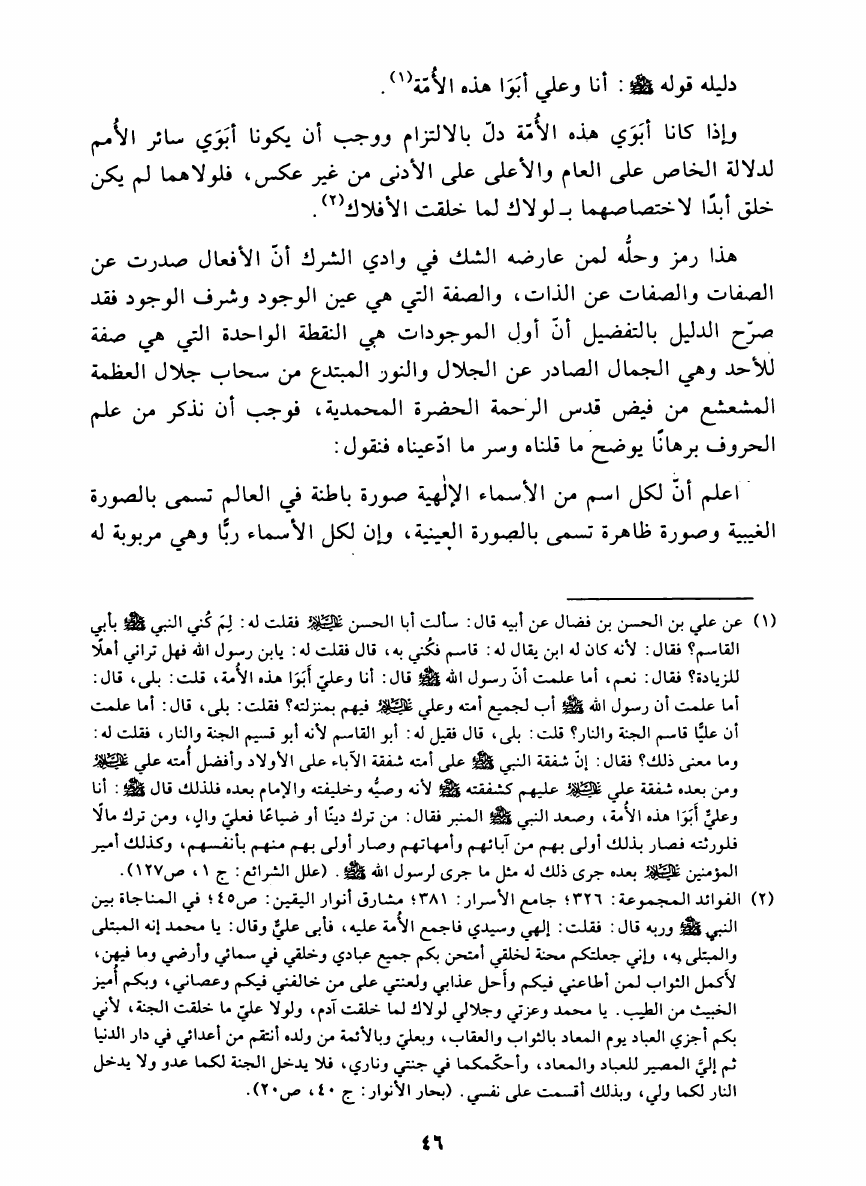 دليله قوله ﷺ: أنا وعلي أبَوَا هذه الأُمّة(١).
وإذا كانا أبَوَي هذه الأُمّة دلّ بالالتزام ووجب أن يكونا أبَوَي سائر الأُمم
لدلالة الخاص على العام والأعلى على الأدنى من غير عكس، فلولاهما لم يكن
خلق أبدًا لاختصاصهما بـ لولاك لما خلقت الأفلاك(٢).
هذا رمز وحلُّه لمن عارضه الشك في وادي الشرك أنّ الأفعال صدرت عن
الصفات والصفات عن الذات، والصفة التي هي عين الوجود وشرف الوجود فقد
صرّح الدليل بالتفضيل أنّ أول الموجودات هي النقطة الواحدة التي هي صفة
للأحد وهي الجمال الصادر عن الجلال والنور المبتدع من سحاب جلال العظمة
المشعشع من فيض قدس الرحمة الحضرة المحمدية، فوجب أن نذكر من علم
الحروف برهانًا يوضح ما قلناه وسر ما ادّعيناه فنقول:
اعلم أنّ لكل اسم من الأسماء الإلٰهية صورة باطنة في العالم تسمى بالصورة
الغيبية وصورة ظاهرة تسمى بالصورة العينية، وإن لكل الأسماء ربًّا وهي مربوبة له
(١) عن علي بن الحسن بن فضال عن أبيه قال: سألت أبا الحسن عليه السلام فقلت له: لِمَ كُني النبي ﷺ بأبي
القاسم؟ فقال: لأنه كان له ابن يقال له: قاسم فكُني به، قال فقلت له: يابن رسول الله فهل تراني أهلًا
للزيادة؟ فقال: نعم، أما علمت أنّ رسول الله ﷺ قال: أنا وعليّ أَبَوَا هذه الأُمة، قلت: بلى، قال:
أما علمت أن رسول الله ﷺ أب لجميع أمته وعلي عليه السلام فيهم بمنزلته؟ فقلت: بلى، قال: أما علمت
أن عليًّا قاسم الجنة والنار؟ قلت: بلى، قال فقيل له: أبو القاسم لأنه أبو قسيم الجنة والنار، فقلت له:
وما معنى ذلك؟ فقال: إنّ شفقة النبي ﷺ على أمته شفقة الآباء على الأولاد وأفضل أُمته علي عليه السلام
ومن بعده شفقة علي عليه السلام عليهم كشفقته ﷺ لأنه وصيُّه وخليفته والإمام بعده فلذلك قال ﷺ: أنا
وعليٌّ أَبَوَا هذه الأُمة، وصعد النبي ﷺ المنبر فقال: من ترك دينًا أو ضياعًا فعليّ والٍ، ومن ترك مالًا
فلورثته فصار بذلك أولى بهم من آبائهم وأمهاتهم وصار أولى بهم منهم بأنفسهم، وكذلك أمير
المؤمنين عليه السلام بعده جرى ذلك له مثل ما جرى لرسول الله ﷺ. (علل الشرائع: ج ١، ص١٢٧).
(٢) الفوائد المجموعة: ٣٢٦؛ جامع الأسرار: ٣٨١؛ مشارق أنوار اليقين: ص٤٥؛ في المناجاة بين
النبي ﷺ وربه قال: فقلت: إلهي وسيدي فاجمع الأمة عليه، فأبى عليٌّ وقال: يا محمد إنه المبتلى
والمبتلى به، وإني جعلتكم محنة لخلقي أمتحن بكم جميع عبادي وخلقي في سمائي وأرضي وما فيهن،
لأكمل الثواب لمن أطاعني فيكم وأحل عذابي ولعنتي على من خالفني فيكم وعصاني، وبكم أُميز
الخبيث من الطيب. يا محمد وعزتي وجلالي لولاك لما خلقت آدم، ولولا عليّ ما خلقت الجنة، لأني
بكم أجزي العباد يوم المعاد بالثواب والعقاب، وبعليّ وبالأئمة من ولده أنتقم من أعدائي في دار الدنيا
ثم إليَّ المصير للعباد والمعاد، وأحكّمكما في جنتي وناري، فلا يدخل الجنة لكما عدو ولا يدخل
النار لكما ولي، وبذلك أقسمت على نفسي. (بحار الأنوار: ج ٤٠، ص٢٠).
٤٦